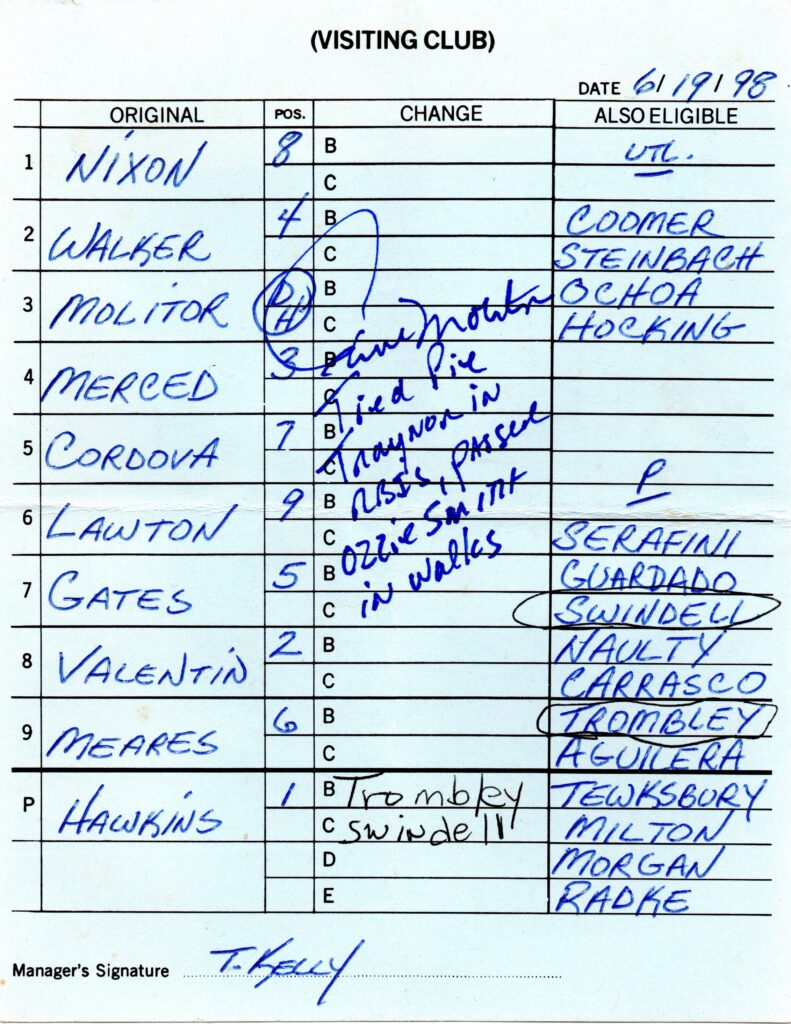 (VISITING CLUB)
DATE 6/19/98
ORIGINAL POS. CHANGE ALSO ELIGIBLE
1 NIXON 8 B UTL.
C
2 WALKER 4 B COOMER
C STEINBACH
3 MOLITOR DH B OCHOA
C HOCKING
4 MERCED 3 B
C
5 CORDOVA 7 B
C P
6 LAWTON 9 B
C SERAFINI
7 GATES 5 B GUARDADO
C SWINDELL
8 VALENTIN 2 B NAULTY
C CARRASCO
9 MEARES 6 B TROMBLEY
C AGUILERA
P HAWKINS 1 B Trombley TEWKSBURY
C Swindell MILTON
D MORGAN
E RADKE
Molitor
Tied Pie
Traynor in
RBIs, passed
Ozzie Smith
in walks
Manager's Signature T. KELLY